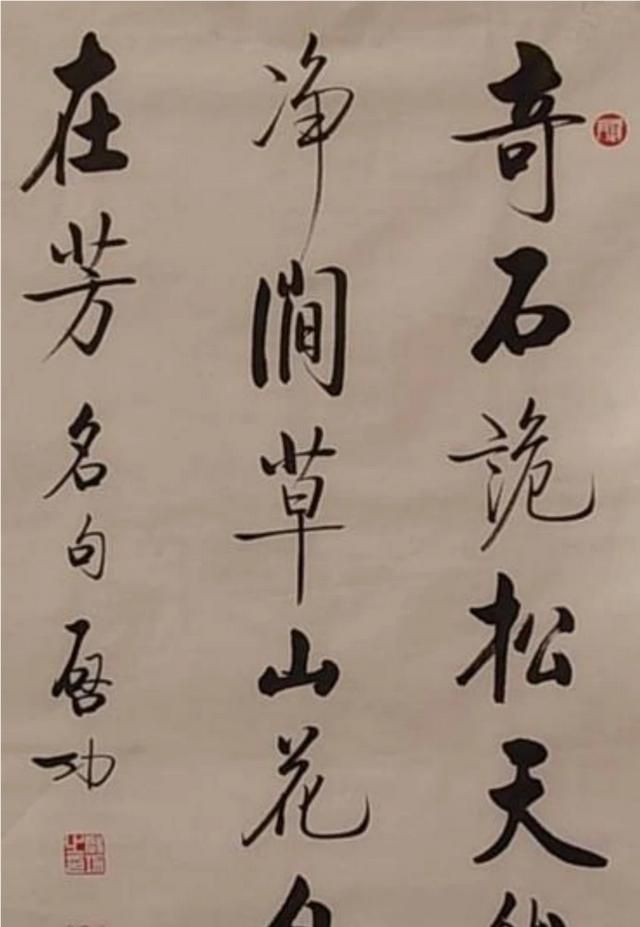 奇石詭松天
净澗草山花
在芳 名句 啟功